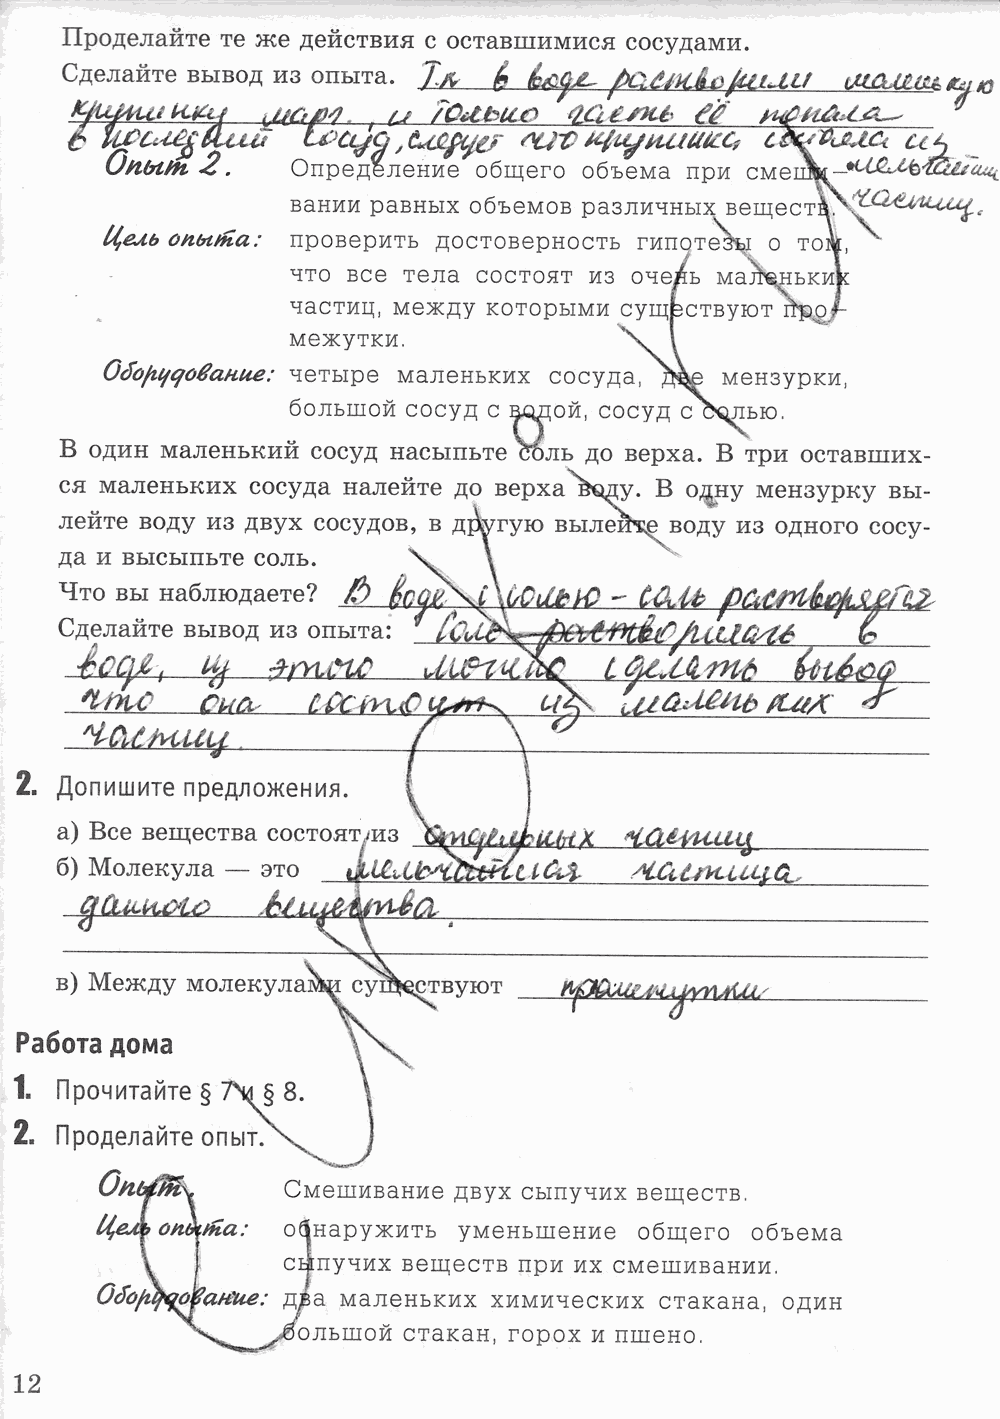 Проделайте те же действия с оставшимися сосудами.
Сделайте вывод из опыта. Т.к в воде растворили маленькую
крупинку марг., и только часть её попала
в последний сосуд, следует что крупинка состояла из
мельчайших
частиц.
Опыт 2. Определение общего объема при смеши-
вании равных объемов различных веществ.
Цель опыта: проверить достоверность гипотезы о том,
что все тела состоят из очень маленьких
частиц, между которыми существуют про-
межутки.
Оборудование: четыре маленьких сосуда, две мензурки,
большой сосуд с водой, сосуд с солью.
В один маленький сосуд насыпьте соль до верха. В три оставших-
ся маленьких сосуда налейте до верха воду. В одну мензурку вы-
лейте воду из двух сосудов, в другую вылейте воду из одного сосу-
да и высыпьте соль.
Что вы наблюдаете? В воде с солью - соль растворяется
Сделайте вывод из опыта: Соль растворилась в
воде, из этого можно сделать вывод
что она состоит из маленьких
частиц.
2. Допишите предложения.
а) Все вещества состоят из отдельных частиц
б) Молекула — это мельчайшая частица
данного вещества.
в) Между молекулами существуют промежутки
Работа дома
1. Прочитайте § 7 и § 8.
2. Проделайте опыт.
Опыт. Смешивание двух сыпучих веществ.
Цель опыта: обнаружить уменьшение общего объема
сыпучих веществ при их смешивании.
Оборудование: два маленьких химических стакана, один
большой стакан, горох и пшено.
12